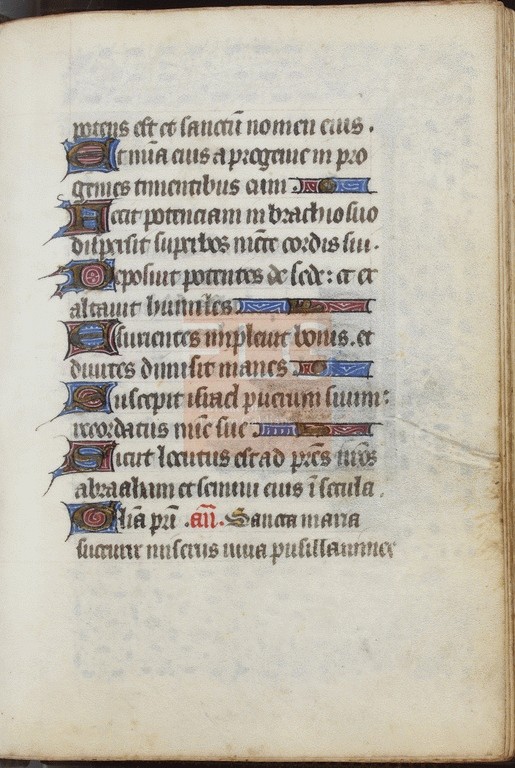 potens est et sanctū nomen eius.
Et mīa eius a progenie in pro
genies timentibus eum
Fecit potenciam in brachio suo
dispersit superbos mēte cordis sui.
Deposuit potentes de sede: et ex
altauit humiles
Esurientes impleuit bonis. et
diuites dimisit inanes
Suscepit israel puerum suum:
recordatus mīe sue
Sicut locutus est ad p̄res nr̄os
abraaham et semini eius ī secula.
Glīa pr̄i. añ. Sancta maria
sucurre miseris iuua pusillanimes